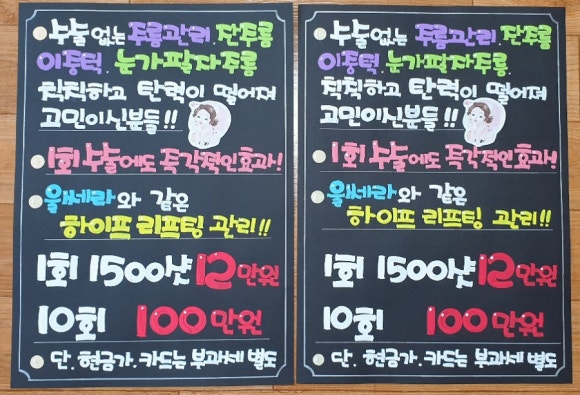 부술없는 주름관리. 잔주름
이중턱. 눈가팔자주름.
칙칙하고 탄력이 떨어져
고민이신분들!!
1회 부술에도 즉각적인효과!
울쎄라와 같은
하이프 리프팅 관리!!
1회 1500샷 12만원
10회 100만원
단. 현금가. 카드는 부과세 별도
부술없는 주름관리. 잔주름
이중턱. 눈가팔자주름.
칙칙하고 탄력이 떨어져
고민이신분들!!
1회 부술에도 즉각적인효과!
울쎄라와 같은
하이프 리프팅 관리!!
1회 1500샷 12만원
10회 100만원
단. 현금가. 카드는 부과세 별도